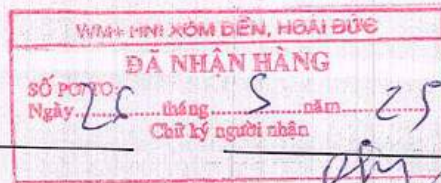 WM+ HNI XÓM DIỀN, HOÀI ĐỨC
ĐÃ NHẬN HÀNG
SỐ PO/TO:
Ngày 26 tháng 5 năm 25
Chữ ký người nhận